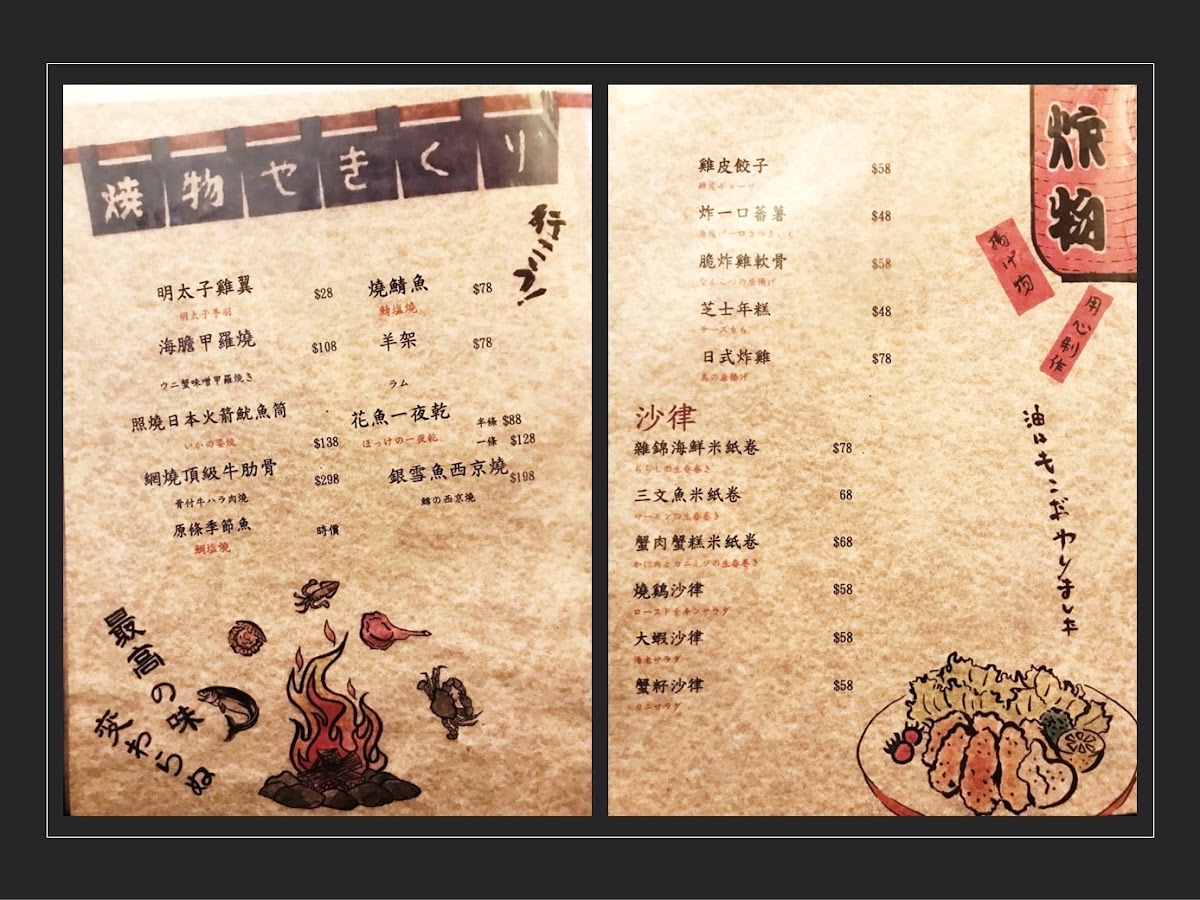 燒物やきくり
行こう!
明太子雞翼 $28
明太子手羽
海膽甲羅燒 $108
ウニ蟹味噌甲羅焼き
照燒日本火箭魷魚筒 $138
いかの姿焼
網燒頂級牛肋骨 $298
骨付牛ハラ肉焼
原條季節魚 時價
鯛塩焼
燒鯖魚 $78
鯖塩焼
羊架 $78
ラム
花魚一夜乾 半條 $88
ほっけの一夜乾 一條 $128
銀雪魚西京燒 $198
鱈の西京焼
最高の味
変わらぬ
炸物
揚げ物
用心制作
雞皮餃子 $58
雞皮ギョーザ
炸一口蕃薯 $48
脆炸雞軟骨 $58
なんこつの唐揚げ
芝士年糕 $48
チーズもち
日式炸雞 $78
鳥の唐揚げ
沙律
雜錦海鮮米紙卷 $78
ちらしの生春巻き
三文魚米紙卷 68
サーモンの生春巻き
蟹肉蟹糕米紙卷 $68
かに肉とカニミソの生春巻き
燒鷄沙律 $58
ローストチキンサラダ
大蝦沙律 $58
海老サラダ
蟹籽沙律 $58
カニサラダ